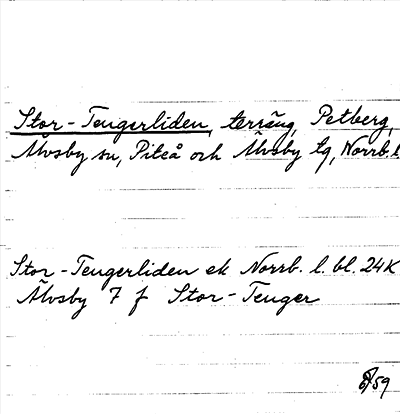 Stor-Tengerliden, terräng, Petberg,
Älvsby sn, Piteå och Älvsby tg, Norrb. l.
Stor-Tengerliden ek Norrb. l. bl. 24K
Älvsby 7 f Stor-Tenger
8/59